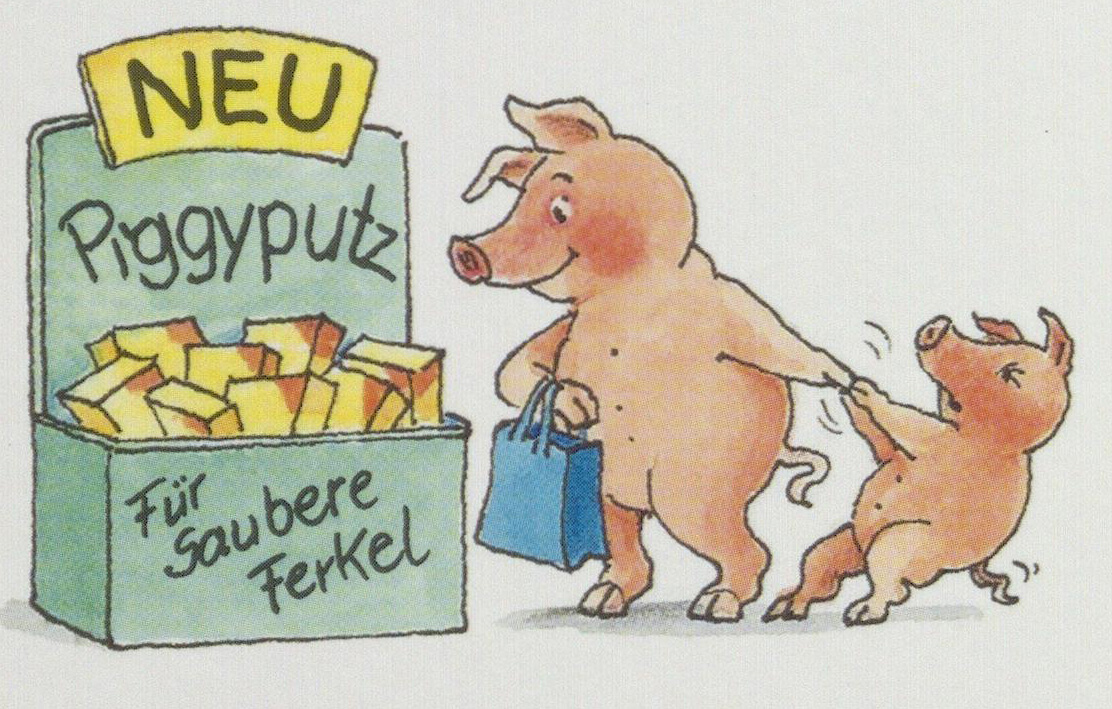 NEU
Piggyputz
Für
saubere
Ferkel